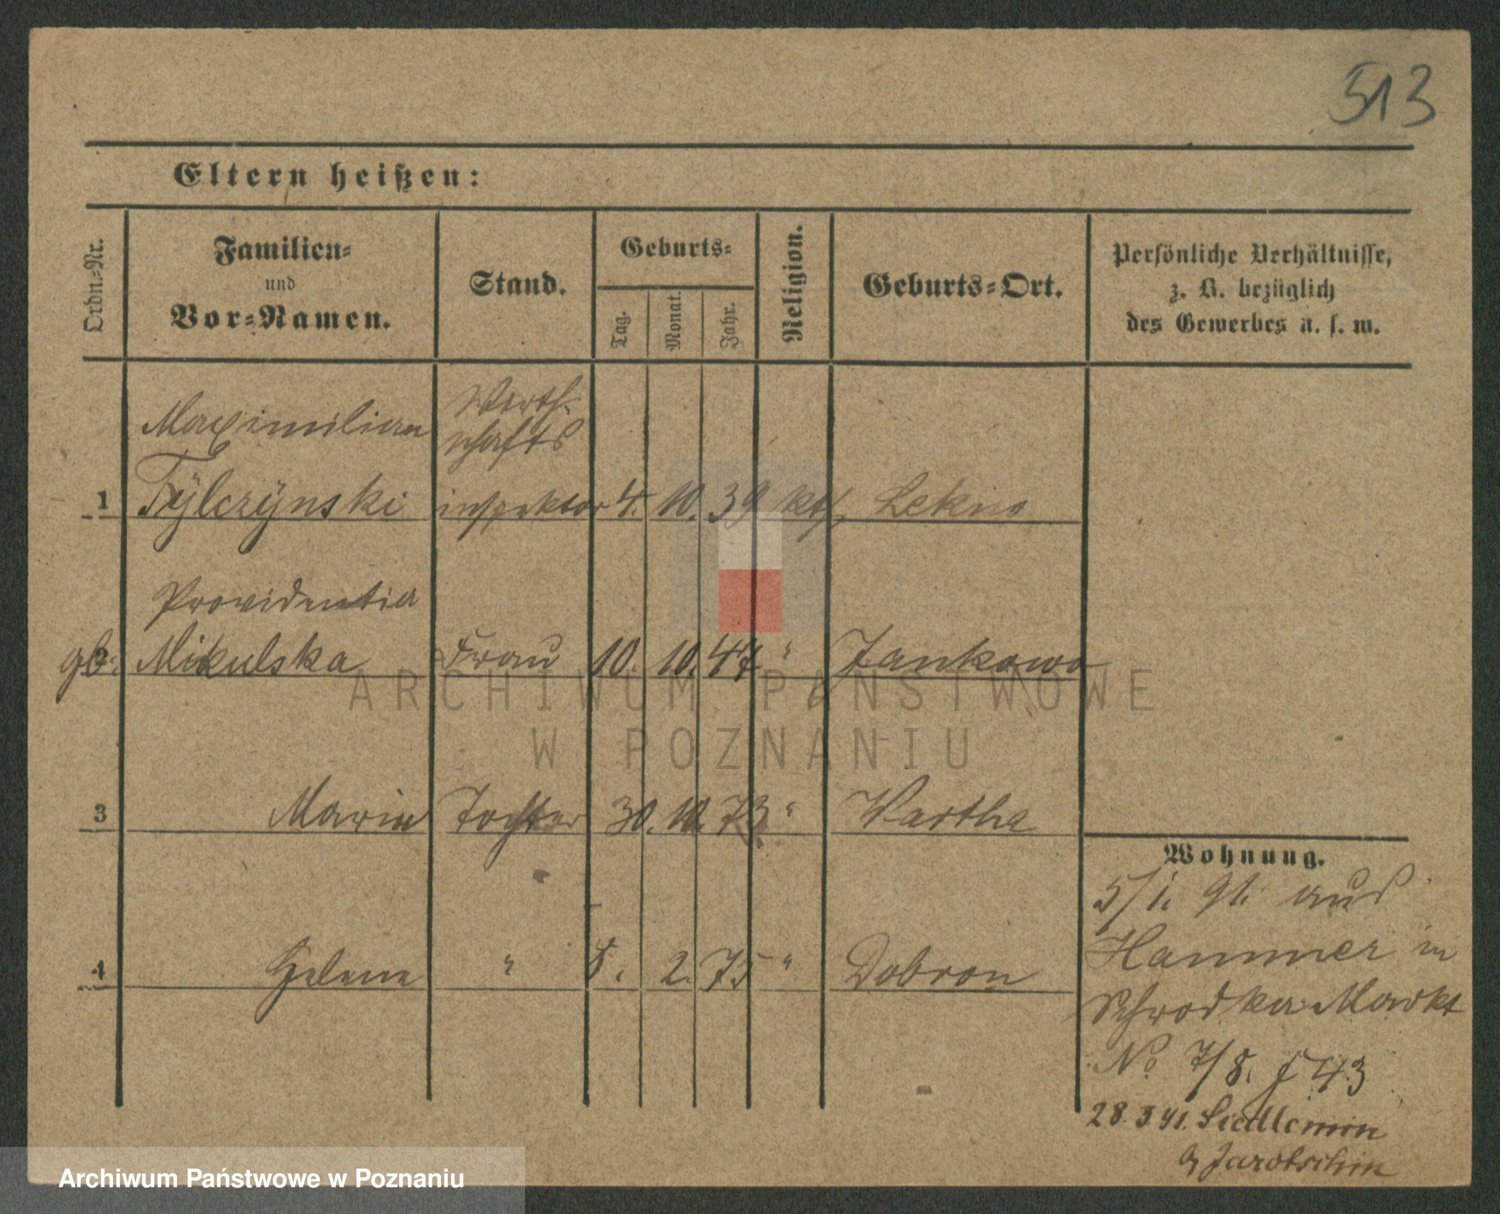 513
Eltern heißen:
Ordn.-Nr.
Familien-
und
Vor-Namen.
Stand.
Geburts-
Tag.
Monat.
Jahr.
Religion.
Geburts-Ort.
Persönliche Verhältnisse,
z. B. bezüglich
des Gewerbes u. s. w.
Maximilian Wirth-
schafts
1 Tylczynski inspektor 4. 10. 39 kth Lekno
Providentia
gb. Mikulska Frau 10. 10. 47 " Jankowo
3 Maria Tochter 30. 10. 73 " Wartha
4 Helene " 8. 2. 75 " Dobron
Wohnung.
5/1. 91. aus
Hammer in
Schrodka-Markt
No 7/8. 43
28.3 91. Siedlemin
Jarotschin
ARCHIWUM PAŃSTWOWE
W POZNANIU
Archiwum Państwowe w Poznaniu